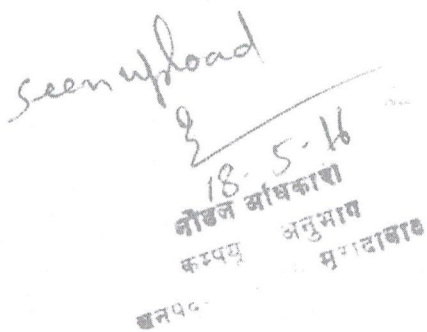 seen upload
18-5-16
नोडल अधिकारी
कम्प्यू अनुभाग
जनपद- मुरादाबाद